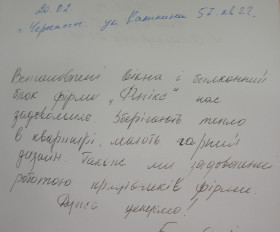 20.02
г. Черкассы ул Калинина 51. кв 22.
Встановлені вікна і балконний
блок фірми „Фенікс" нас
задовольнили. Зберігають тепло
в квартирі, мають гарний
дизайн. Також ми задоволені
роботою працівників фірми.
Дуже